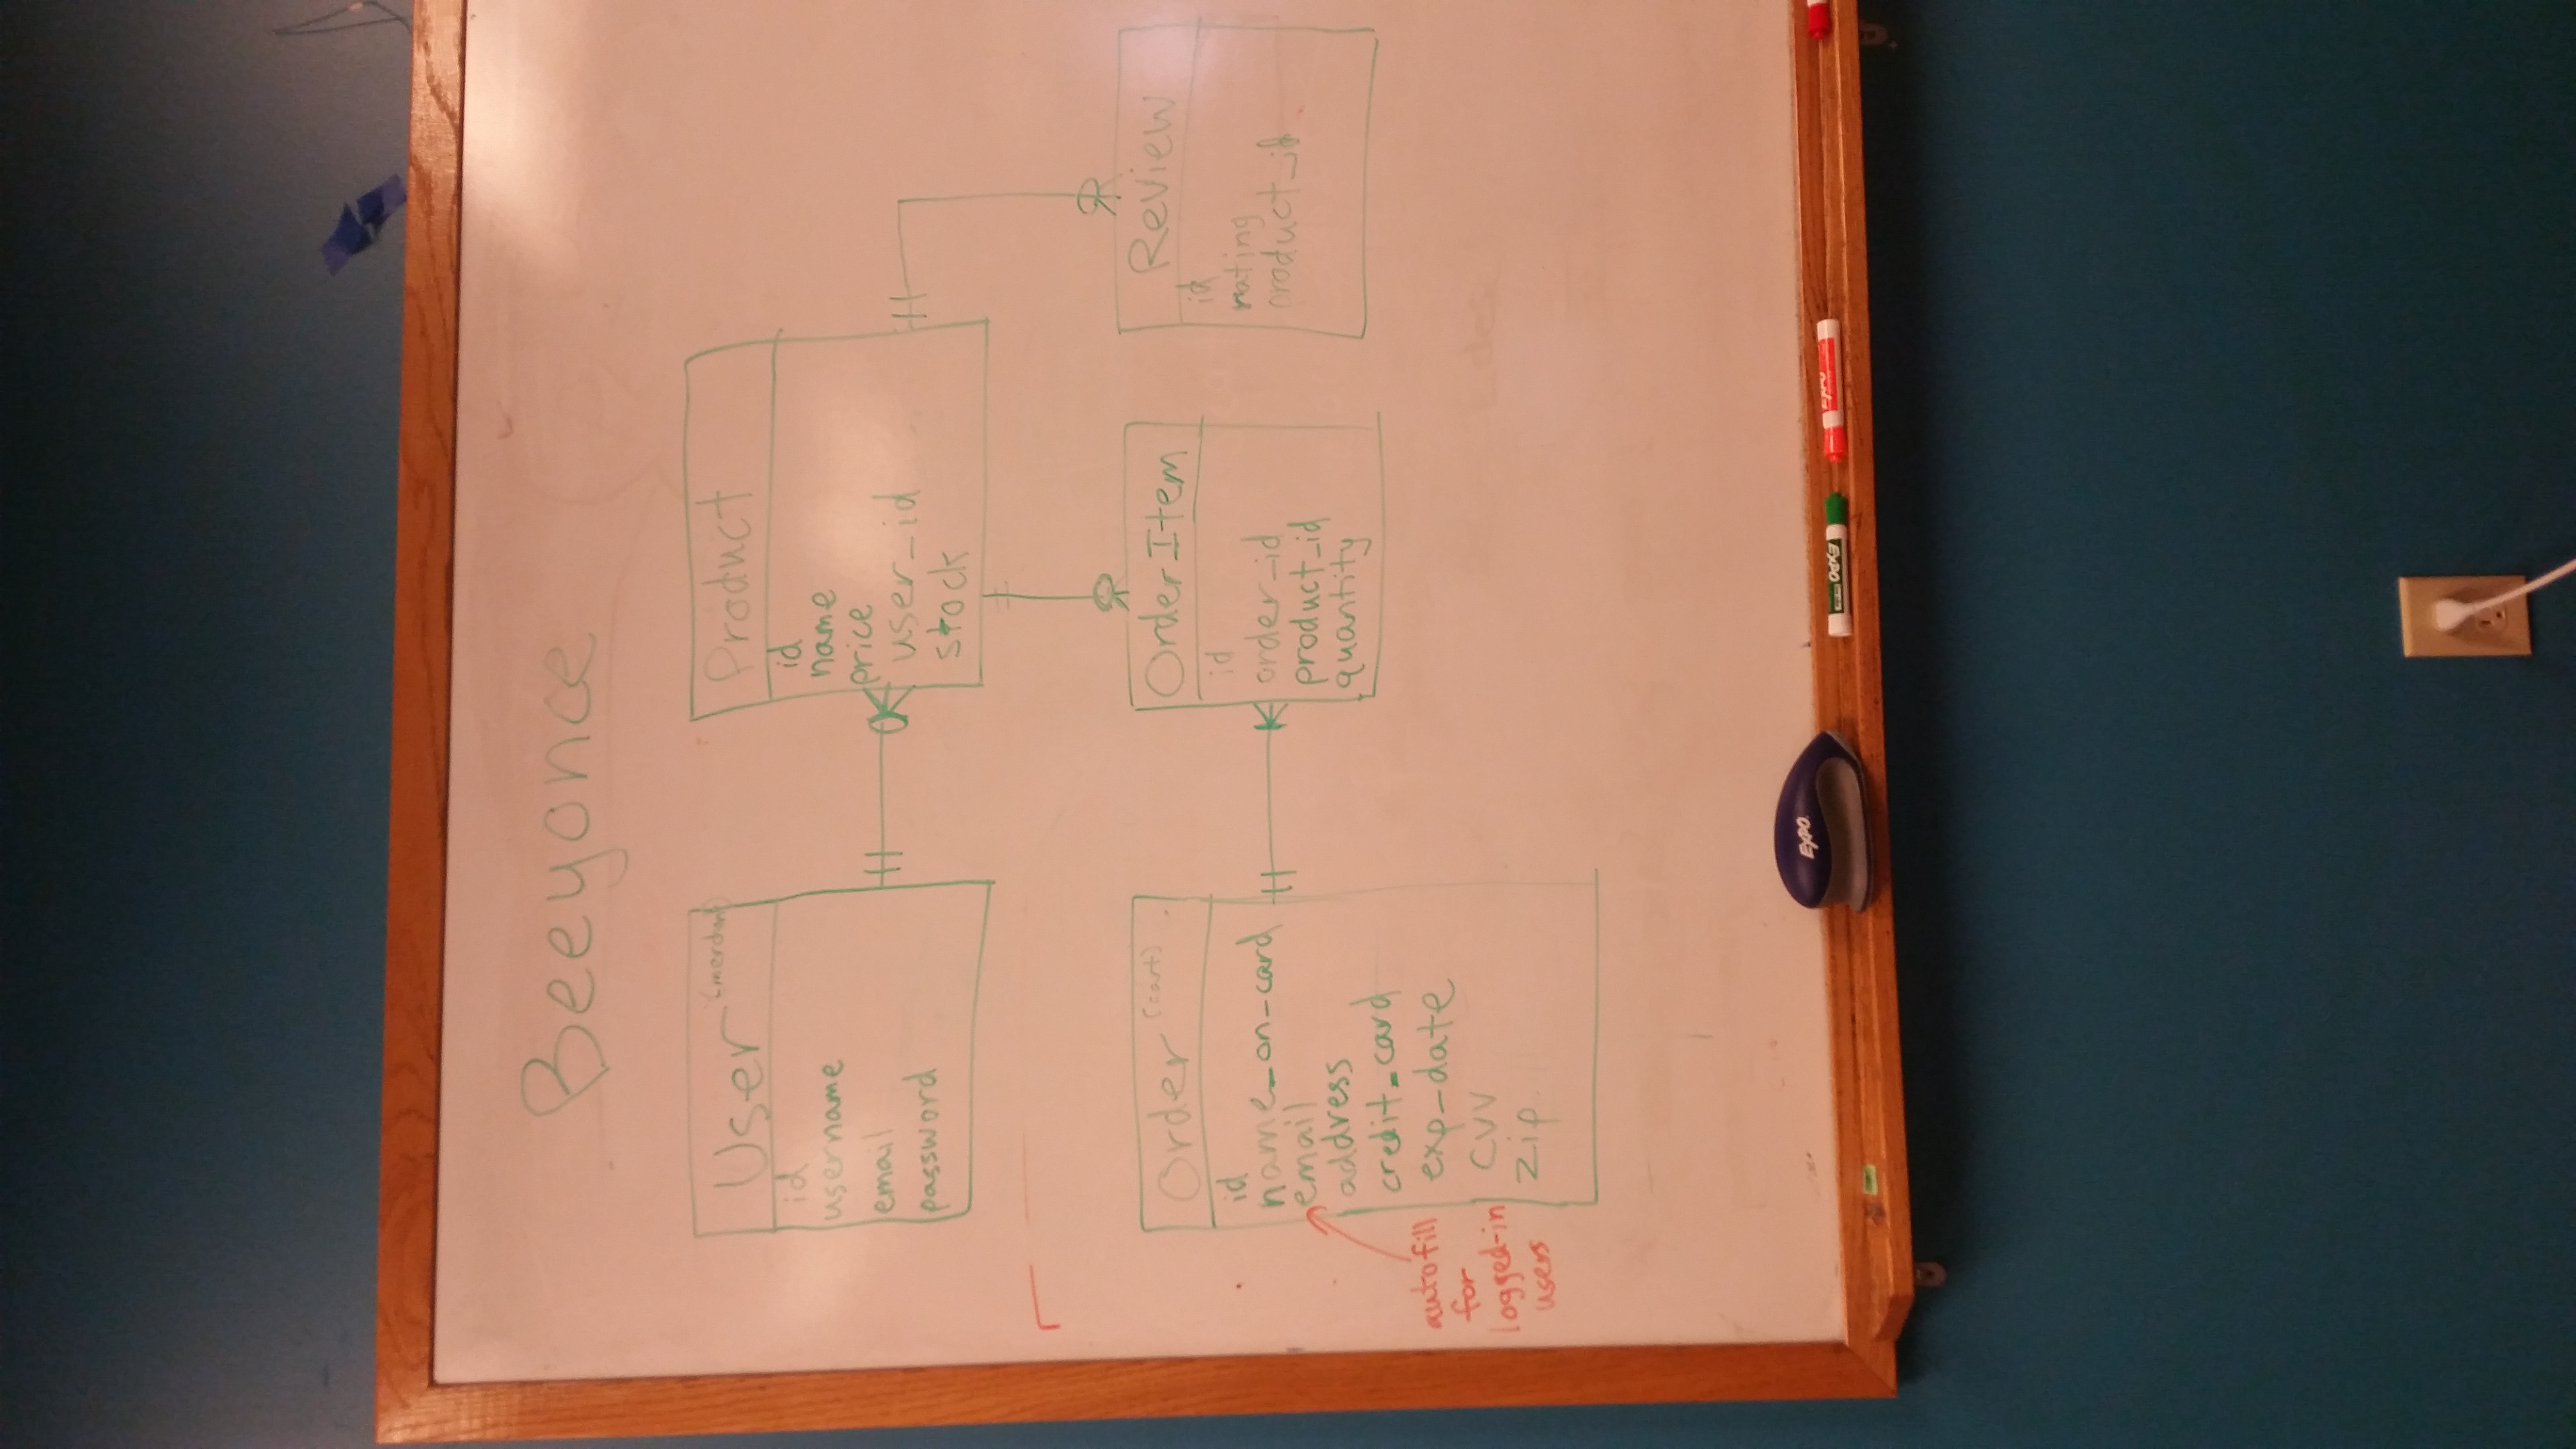 Beeyonce
User (merchant)
id
username
email
password
Product
id
name
price
user_id
stock
Order (cart)
id
name_on_card
email
address
credit_card
exp_date
cvv
zip
autofill
for
logged-in
users
OrderItem
id
order_id
product_id
quantity
Review
id
rating
product_id
EXPO
EXPO
EXPO